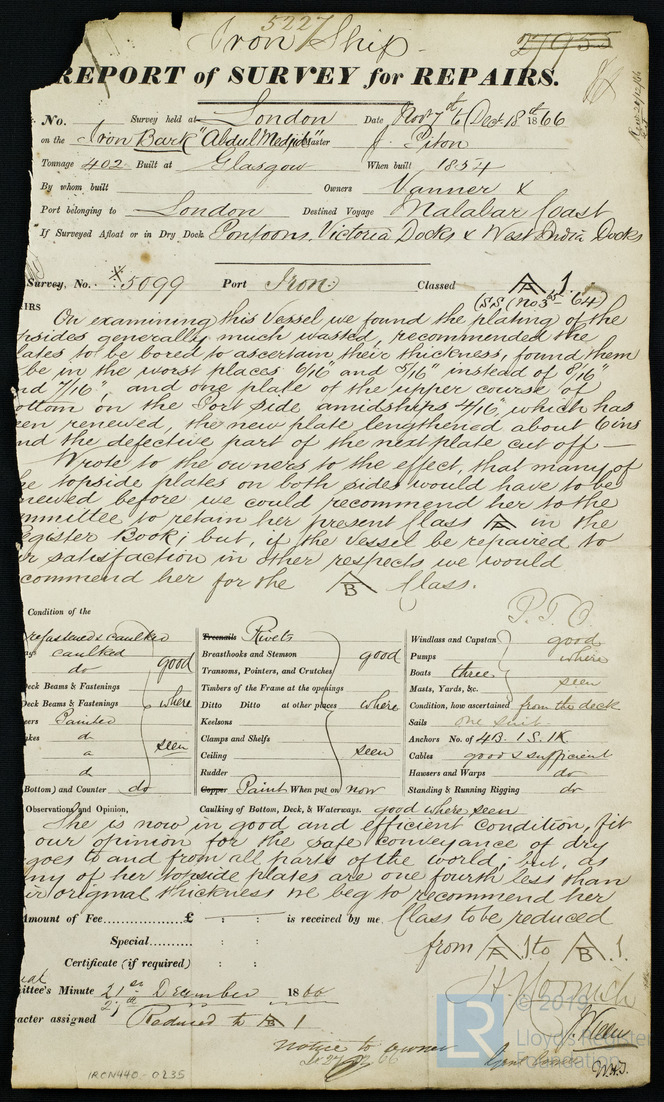 5227
Iron Ship
27955
REPORT of SURVEY for REPAIRS.
No. Survey held at London Date Nov 7th to Dec 18th 1866
on the Iron Bark "Abdul Medjid" Master J. Piton
Tonnage 402 Built at Glasgow When built 1854
By whom built Owners Vanner &
Port belonging to London Destined Voyage Malabar Coast
If Surveyed Afloat or in Dry Dock Pontoons, Victoria Docks & West India Docks
Survey, No. 5099 Port Iron Classed A 1.
(SS (No 3 - 64)
IRS
On examining this Vessel we found the plating of the
psides generally much wasted, recommended the
lates to be bored to ascertain their thickness, found them
be in the worst places 6/16" and 5/16" instead of 8/16"
nd 7/16", and one plate of the upper course of
ottom on the Port side amidships 4/16", which has
en renewed, the new plate lengthened about 6 ins
nd the defective part of the next plate cut off—
Wrote to the owners to the effect, that many of
he topside plates on both sides would have to be
newed before we could recommend her to the
mmittee to retain her present Class A in the
egister Book; but, if the Vessel be repaired to
ur satisfaction in other respects we would
commend her for the A B Class.
P.T.O.
Condition of the
refastened & caulked
caulked
do
good
eck Beams & Fastenings
Deck Beams & Fastenings where
eers Painted
kes do
seen
a
d
Bottom) and Counter do
Treenails Rivets
Breasthooks and Stemson good
Transoms, Pointers, and Crutches
Timbers of the Frame at the openings
Ditto Ditto at other places where
Keelsons
Clamps and Shelfs
Ceiling seen
Rudder
Copper Paint When put on now
Windlass and Capstan good
Pumps where
Boats three
Masts, Yards, &c. seen
Condition, how ascertained from the deck
Sails one suit
Anchors No. of 4B. 1S. 1K
Cables good & sufficient
Hawsers and Warps do
Standing & Running Rigging do
Observations and Opinion, Caulking of Bottom, Deck, & Waterways. good where seen
She is now in good and efficient condition, fit
our opinion for the safe conveyance of dry
goes to and from all parts of the world; but, as
ny of her topside plates are one fourth less than
eir original thickness we beg to recommend her
Amount of Fee............£ : : is received by me Class to be reduced
Special....... : : from A 1 to A B 1.
Certificate (if required) : :
ittee's Minute 21st December 1866
racter assigned Reduced to A B 1
notice to owner
27/12/66
IRON440-0235
LR
© 2019
Lloyd's Register
Foundation
W.H.T.